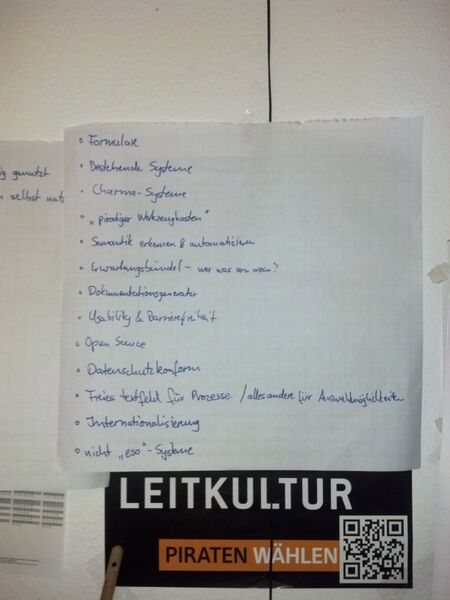 ig genutzt
selbst nutz
• Formulare
• Bestehende Systeme
• Charma-Systeme
• „piratiger Werkzeugkasten"
• Semantik erkennen & automatisieren
• Erwartungsbündel – wer was von wem?
• Dokumentationsgenerator
• Usability & Barrierefreiheit
• Open Source
• Datenschutzkonform
• Freies textfeld für Prozesse / alles andere für Auswahlmöglichkeiten
• Internationalisierung
• nicht „eso"-Systeme
LEITKULTUR
PIRATEN WÄHLEN